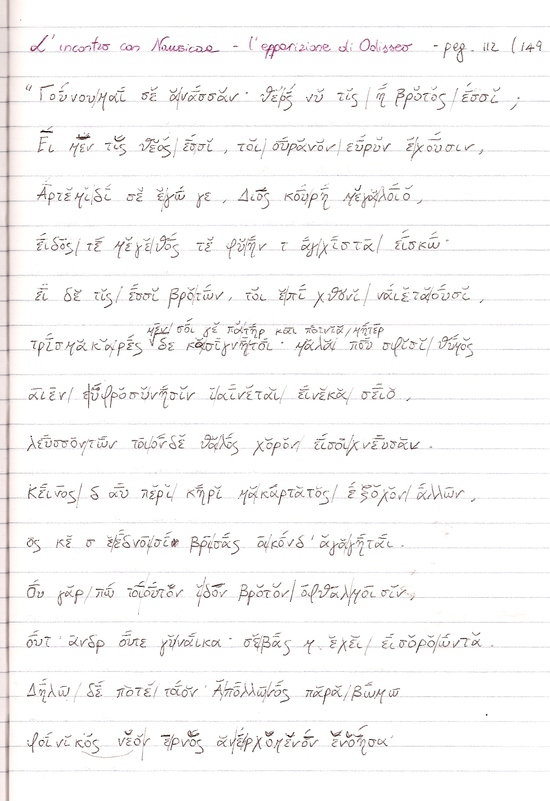 L'incontro con Nausicaa - l'apparizione di Odisseo - pag. 112 (149
"Γουνουμαι σε ανασσαν· θεος νυ τις / η βροτος / εσσι ;
Ει μεν τις θεος / εσσι , τοι / ουρανον / ευρυν εχουσιν ,
Αρτεμιδι σε εγω γε , Διος κουρη μεγαλοιο ,
ειδος / τε μεγεθος τε φυην τ αγχιστα / εισκω ·
ει δε τις / εσσι βροτων , τοι επι χθονι / ναιεταουσι ,
μεν / σοι γε πατηρ και ποτνια / μητερ
τρισμακαρες δε κασιγνητοι · μαλα που σφισι / θυμος
αιεν / ευφροσυνησιν ιαινεται / εινεκα / σειο ,
λευσσοντων τοιονδε θαλος χορον / εισοιχνευσαν .
Κεινος / δ αυ περι / κηρι μακαρτατος / εξοχον / αλλων ,
ος κε σ εεδνοισι βρισας οικονδ' αγαγηται .
Ου γαρ / πω τοιουτον ιδον βροτον / οφθαλμοισιν ,
ουτ ' ανδρ ουτε γυναικα · σεβας μ εχει / εισοροωντα .
Δηλω / δε ποτε / τοιον Απολλωνος παρα / βωμω
φοινικος νεον ερνος ανερχομενον ενοησα ·